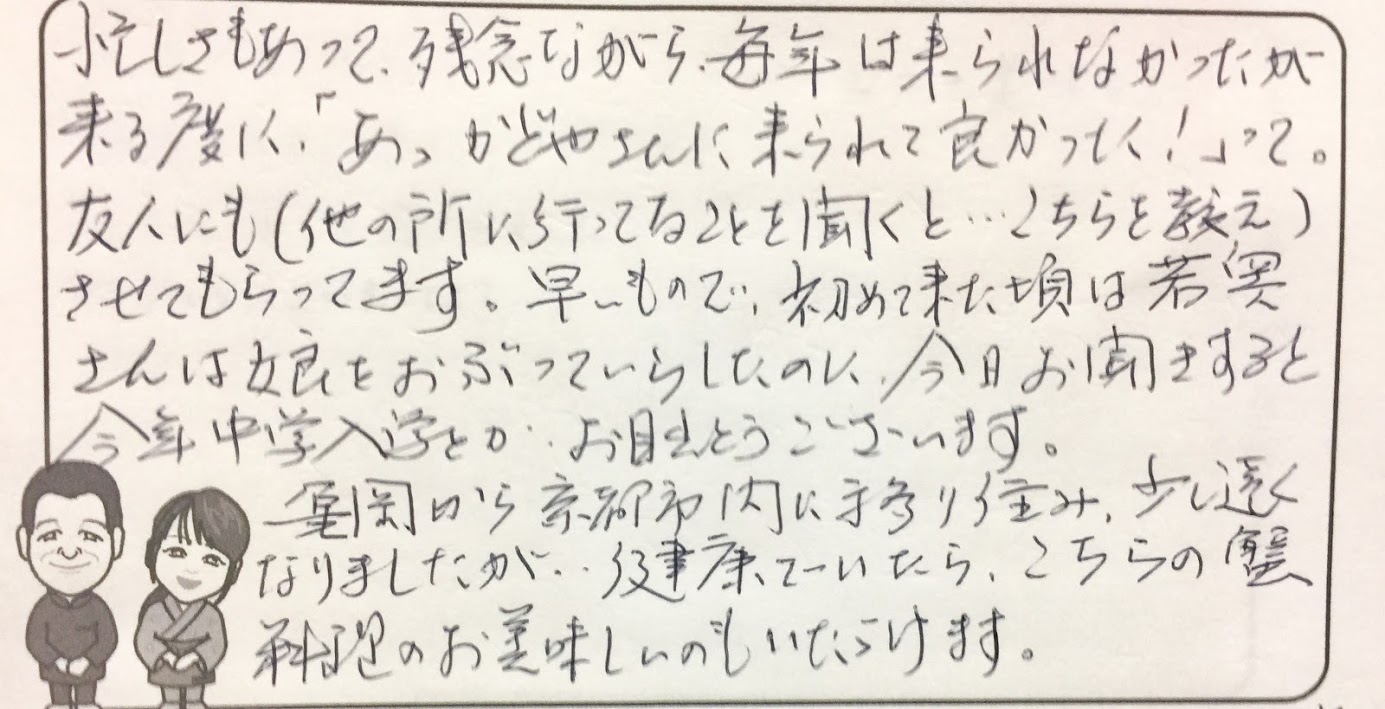 忙しさもあって、残念ながら、毎年は来られなかったが
来る度に、「あっ かどやさんに来られて良かった!」って。
友人にも(他の所に行ってることを聞くと…こちらを教え)
させてもらってます。早いもので、初めて来た頃は若奥
さんは娘をおぶっていらしたのに、今日お聞きすると
今年中学入学とか‥お目出とうございます。
亀岡から京都市内に移り住み、少し遠く
なりましたが‥健康でいたら、こちらの蟹
料理のお美味しいのもいただけます。